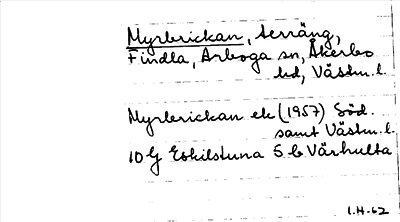 Myrbrickan, terräng,
Findla, Arboga sn, Åkerbo
hd, Västm. l.
Myrbrickan ek (1957) Söd.
samt Västm. l.
10 G Eskilstuna 5 b Värhulta
1.H-62